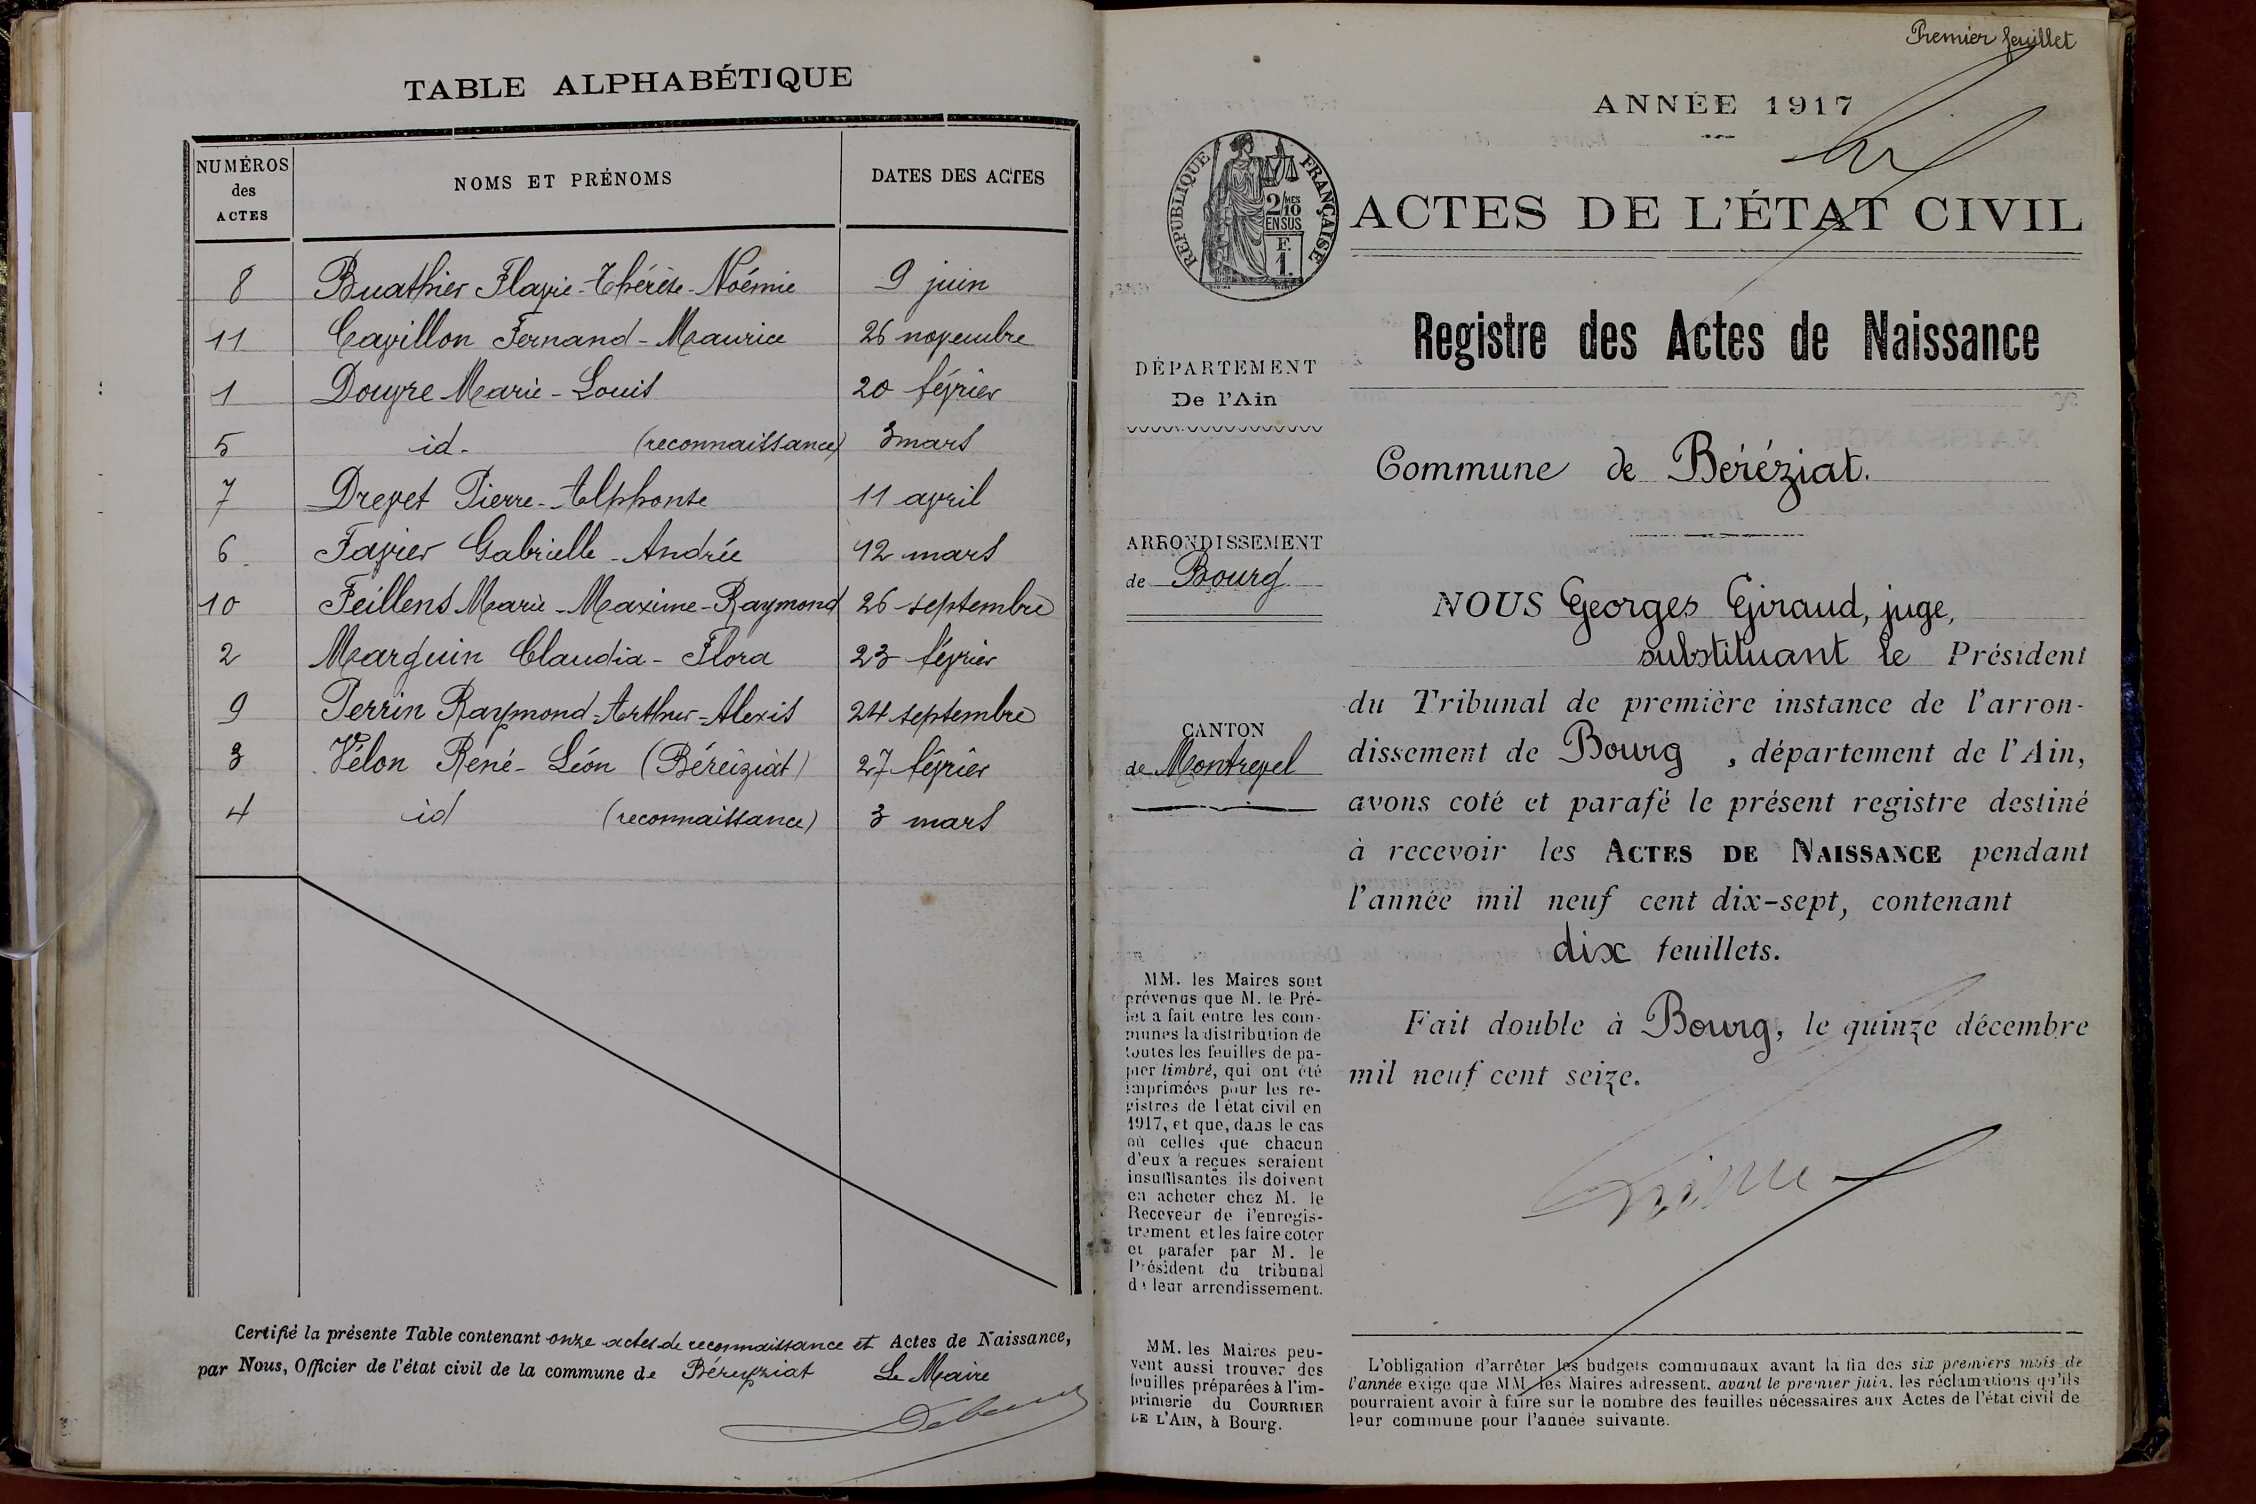 TABLE ALPHABÉTIQUE
NUMÉROS des ACTES NOMS ET PRÉNOMS DATES DES ACTES
8 Buathier Flavie-Thérèse-Noémie 9 juin
11 Cavillon Fernand-Maurice 26 novembre
1 Douvre Marie-Louis 20 février
5 id. (reconnaissance) 3 mars
7 Drevet Pierre-Alphonse 11 avril
6 Favier Gabrielle-Andrée 12 mars
10 Feillens Marie-Maxime-Raymond 26 septembre
2 Marguin Claudia-Flora 23 février
9 Perrin Raymond-Arthur-Alexis 24 septembre
3 Vélon René-Léon (Béréiziat) 27 février
4 id (reconnaissance) 3 mars
Certifié la présente Table contenant onze actes de reconnaissance et Actes de Naissance,
par Nous, Officier de l'état civil de la commune de Béreyziat Le Maire
Premier feuillet
ANNÉE 1917
RÉPUBLIQUE FRANÇAISE
2/10 MES
EN SUS
F.
1.
ACTES DE L'ÉTAT CIVIL
Registre des Actes de Naissance
DÉPARTEMENT
De l'Ain
ARRONDISSEMENT
de Bourg
CANTON
de Montrevel
MM. les Maires sont
prévenus que M. le Pré-
fet a fait entre les com-
munes la distribution de
toutes les feuilles de pa-
pier timbré, qui ont été
imprimées pour les re-
gistres de l'état civil en
1917, et que, dans le cas
où celles que chacun
d'eux a reçues seraient
insuffisantes ils doivent
en acheter chez M. le
Receveur de l'enregis-
trement et les faire coter
et parafer par M. le
Président du tribunal
de leur arrondissement.
MM. les Maires peu-
vent aussi trouver des
feuilles préparées à l'im-
primerie du COURRIER
DE L'AIN, à Bourg.
Commune de Béréziat.
NOUS Georges Giraud, juge,
substituant le Président
du Tribunal de première instance de l'arron-
dissement de Bourg, département de l'Ain,
avons coté et parafé le présent registre destiné
à recevoir les ACTES DE NAISSANCE pendant
l'année mil neuf cent dix-sept, contenant
dix feuillets.
Fait double à Bourg, le quinze décembre
mil neuf cent seize.
L'obligation d'arrêter les budgets communaux avant la fin des six premiers mois de
l'année exige que MM. les Maires adressent, avant le premier juin, les réclamations qu'ils
pourraient avoir à faire sur le nombre des feuilles nécessaires aux Actes de l'état civil de
leur commune pour l'année suivante.